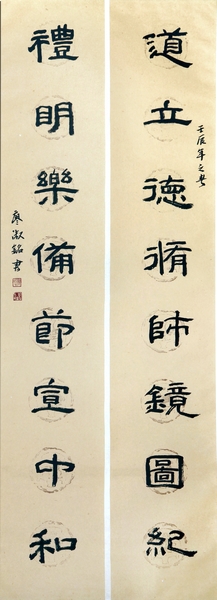 道立德脩師鏡圖紀
壬辰年之
禮明樂備節宣中和
廖銘書